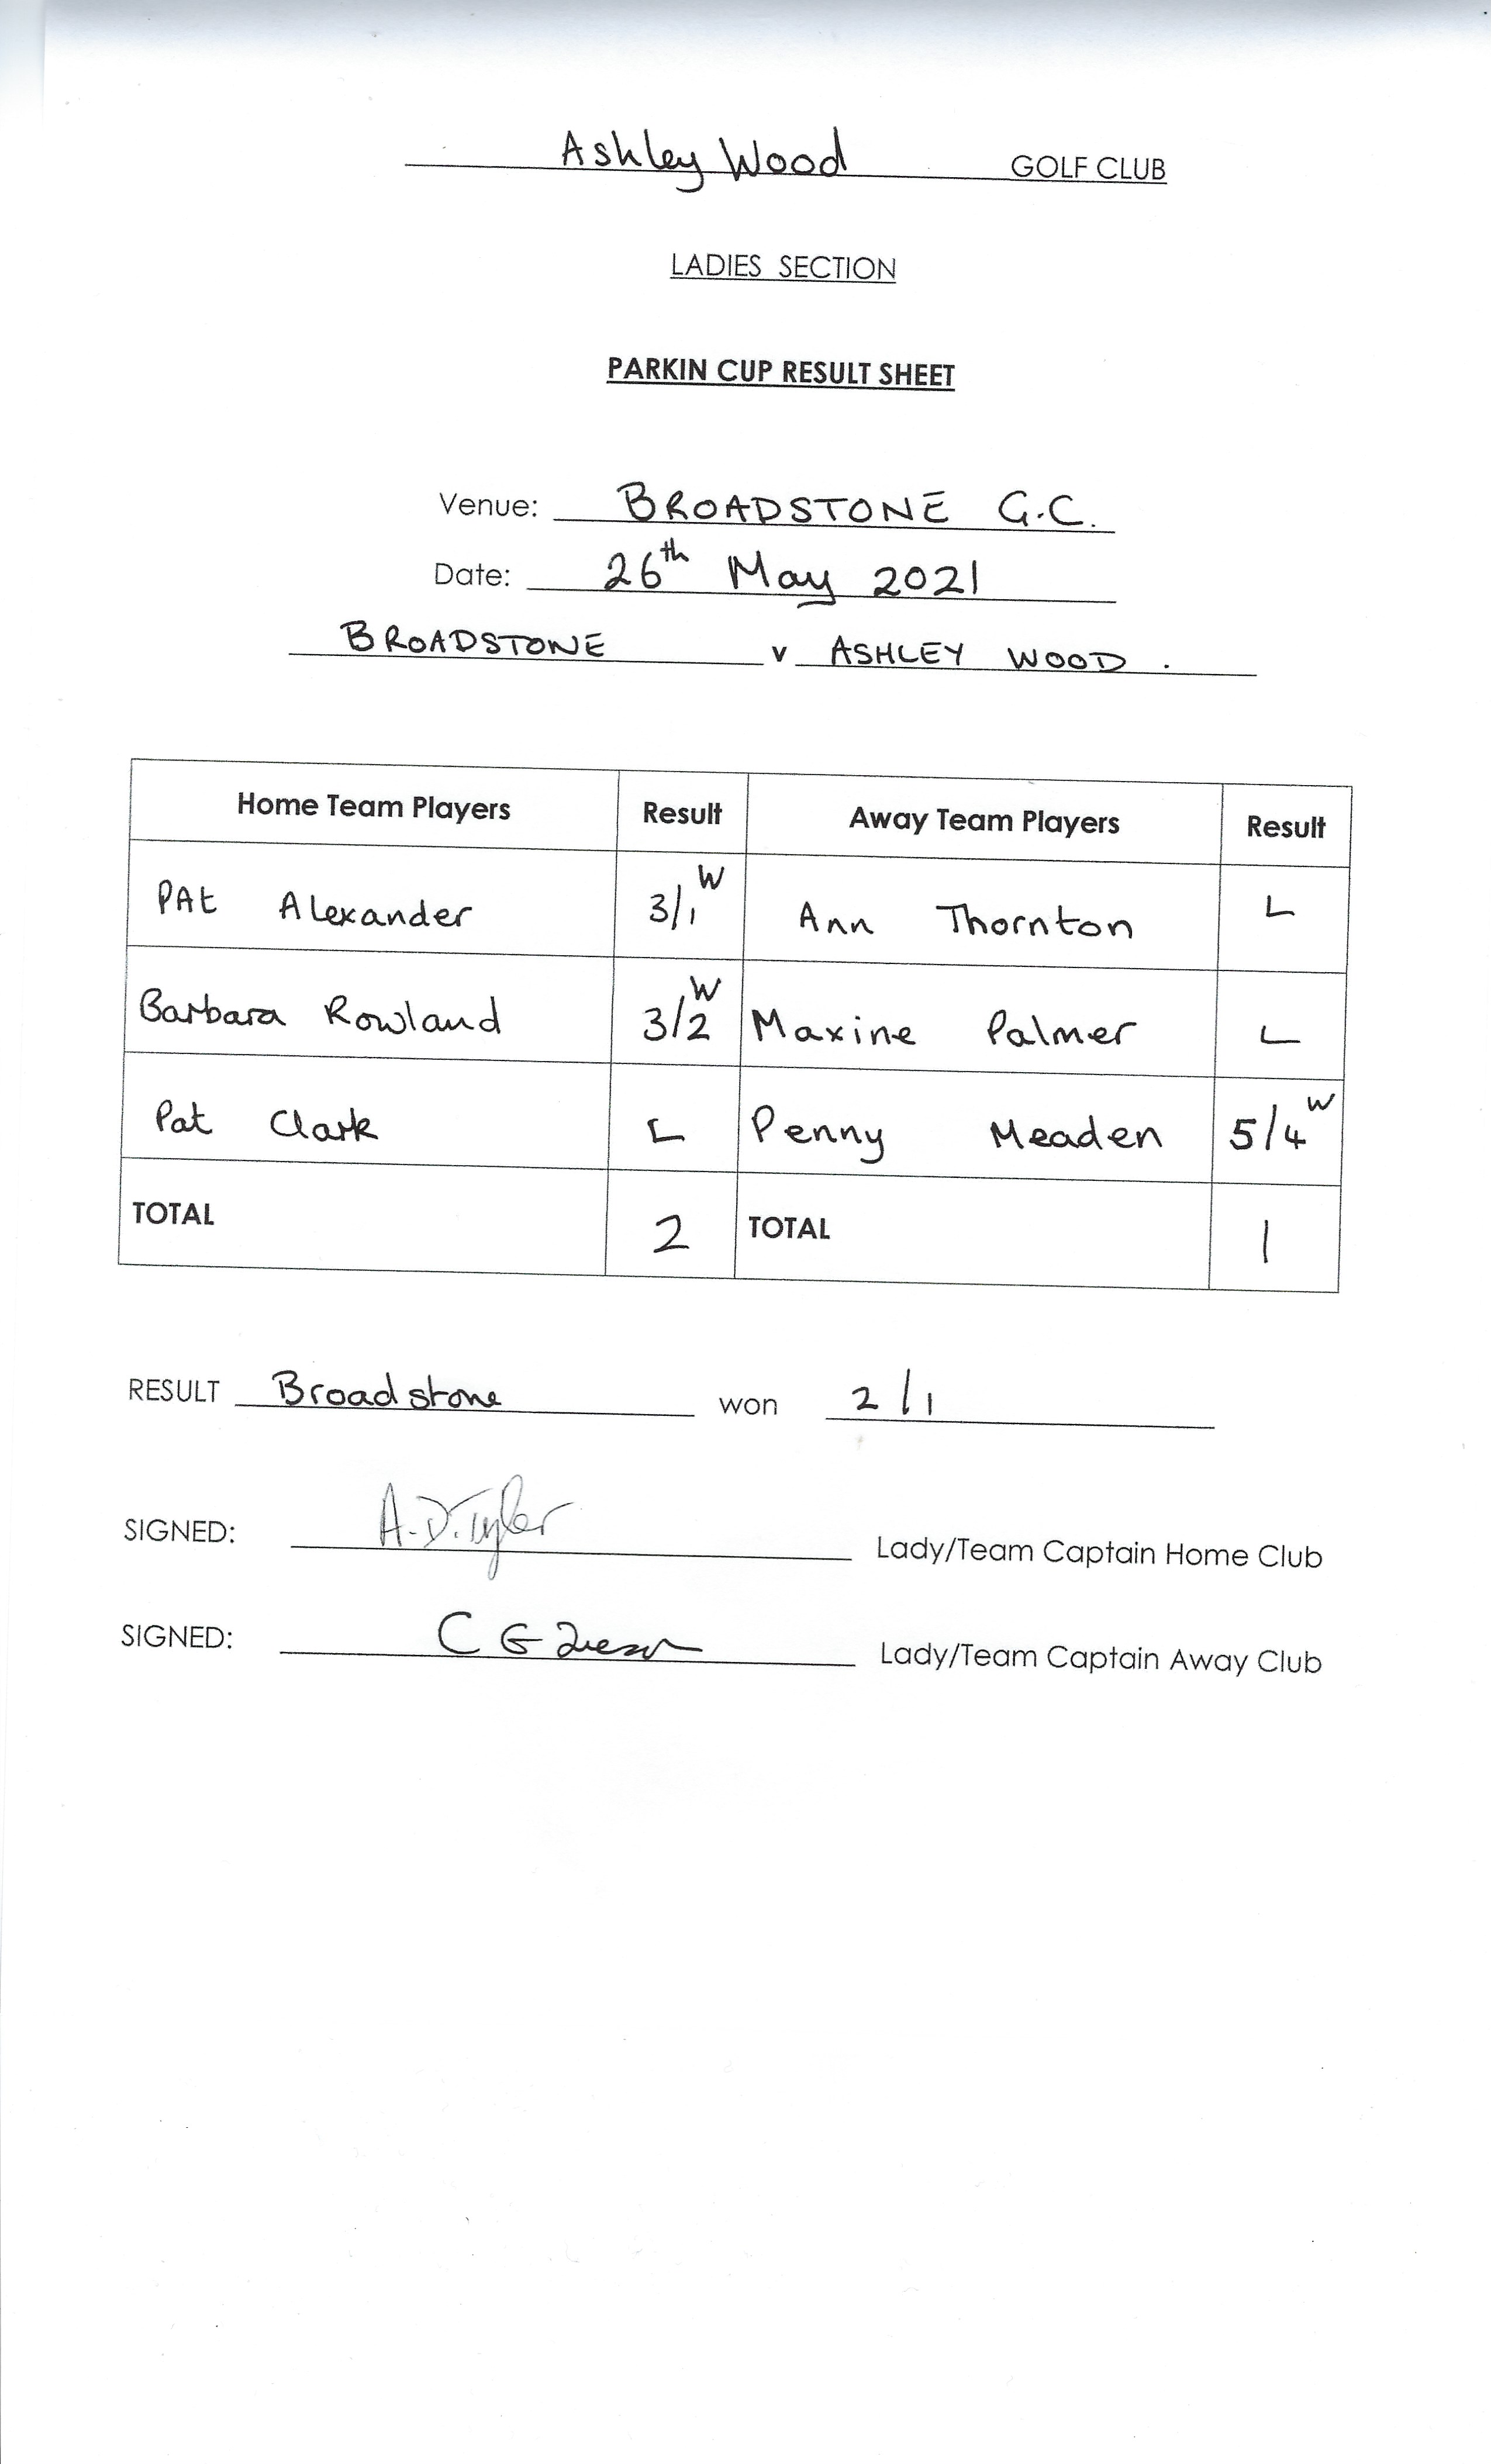 Ashley Wood GOLF CLUB
LADIES SECTION
PARKIN CUP RESULT SHEET
Venue: BROADSTONE G.C.
Date: 26th May 2021
BROADSTONE v ASHLEY WOOD.
Home Team Players Result Away Team Players Result
PAt Alexander 3/1 W Ann Thornton L
Barbara Rowland 3/2 W Maxine Palmer L
Pat Clark L Penny Meaden 5/4 W
TOTAL 2 TOTAL 1
RESULT Broadstone won 2/1
SIGNED: A.D.Tyler Lady/Team Captain Home Club
SIGNED: C G Lady/Team Captain Away Club